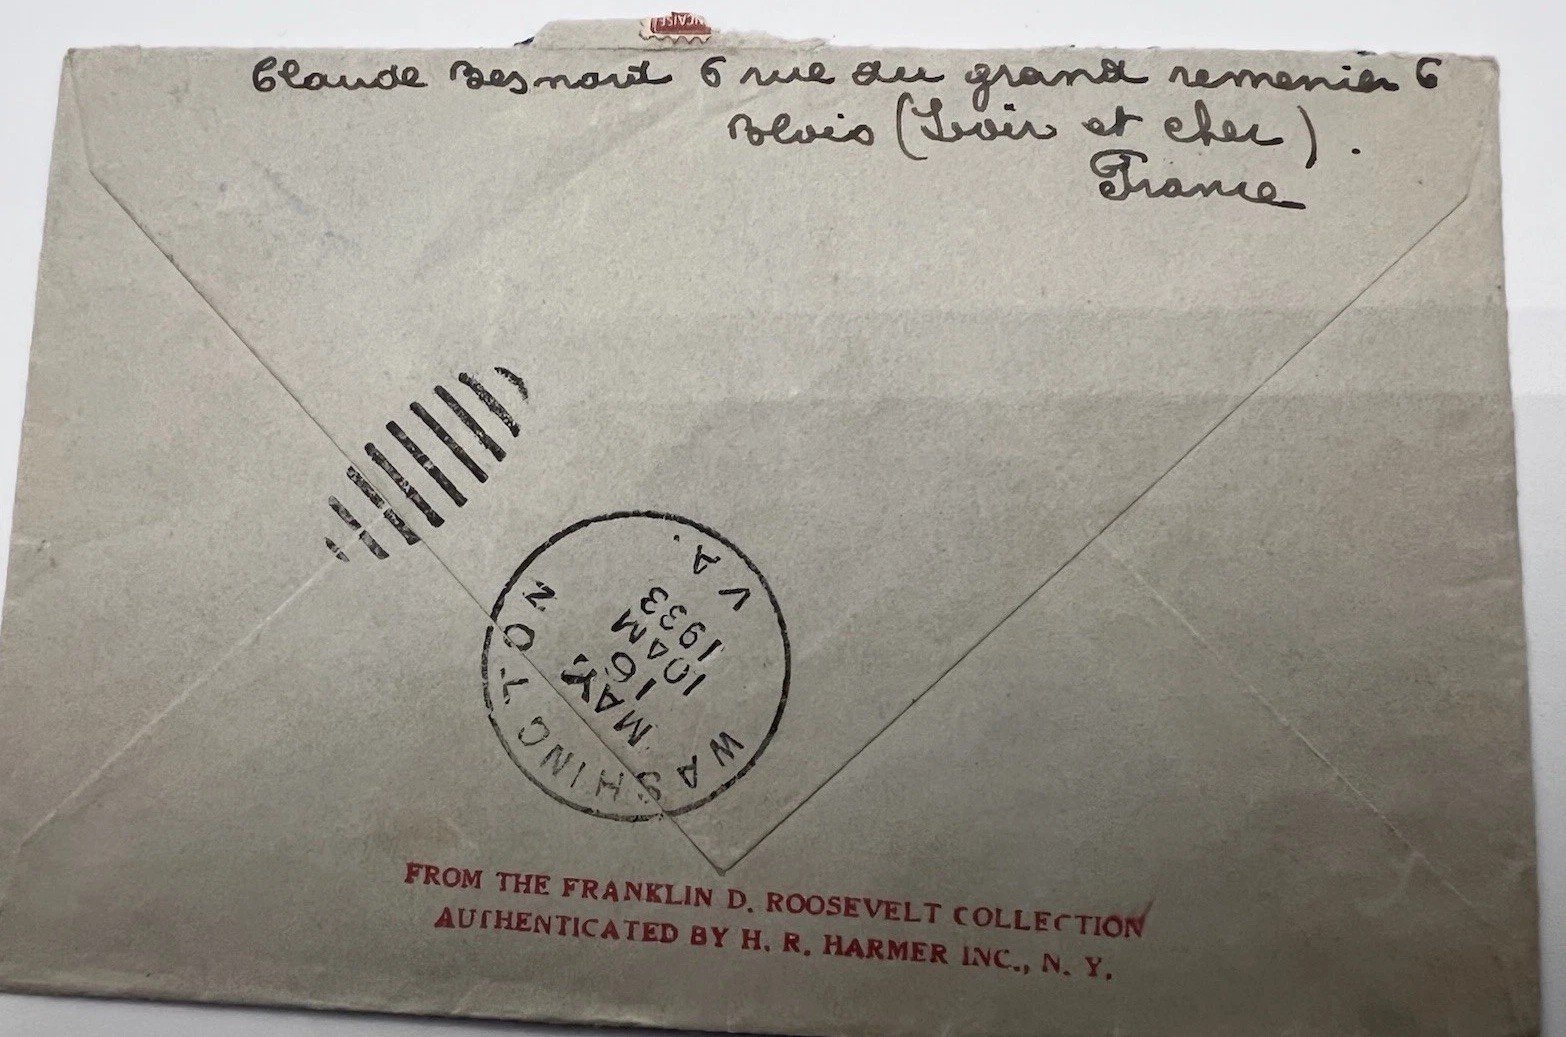 NCAISE
Claude Besnard 6 rue du grand remenier 6
Blois (Loir et cher).
France
WASHINGTON VA.
MAY
16
10 AM
1933
FROM THE FRANKLIN D. ROOSEVELT COLLECTION
AUTHENTICATED BY H. R. HARMER INC., N. Y.